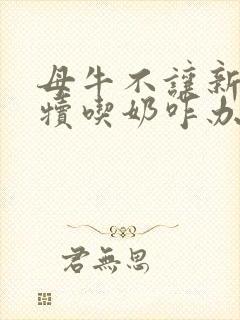 母牛不讓新
犢喫奶咋办
君無思